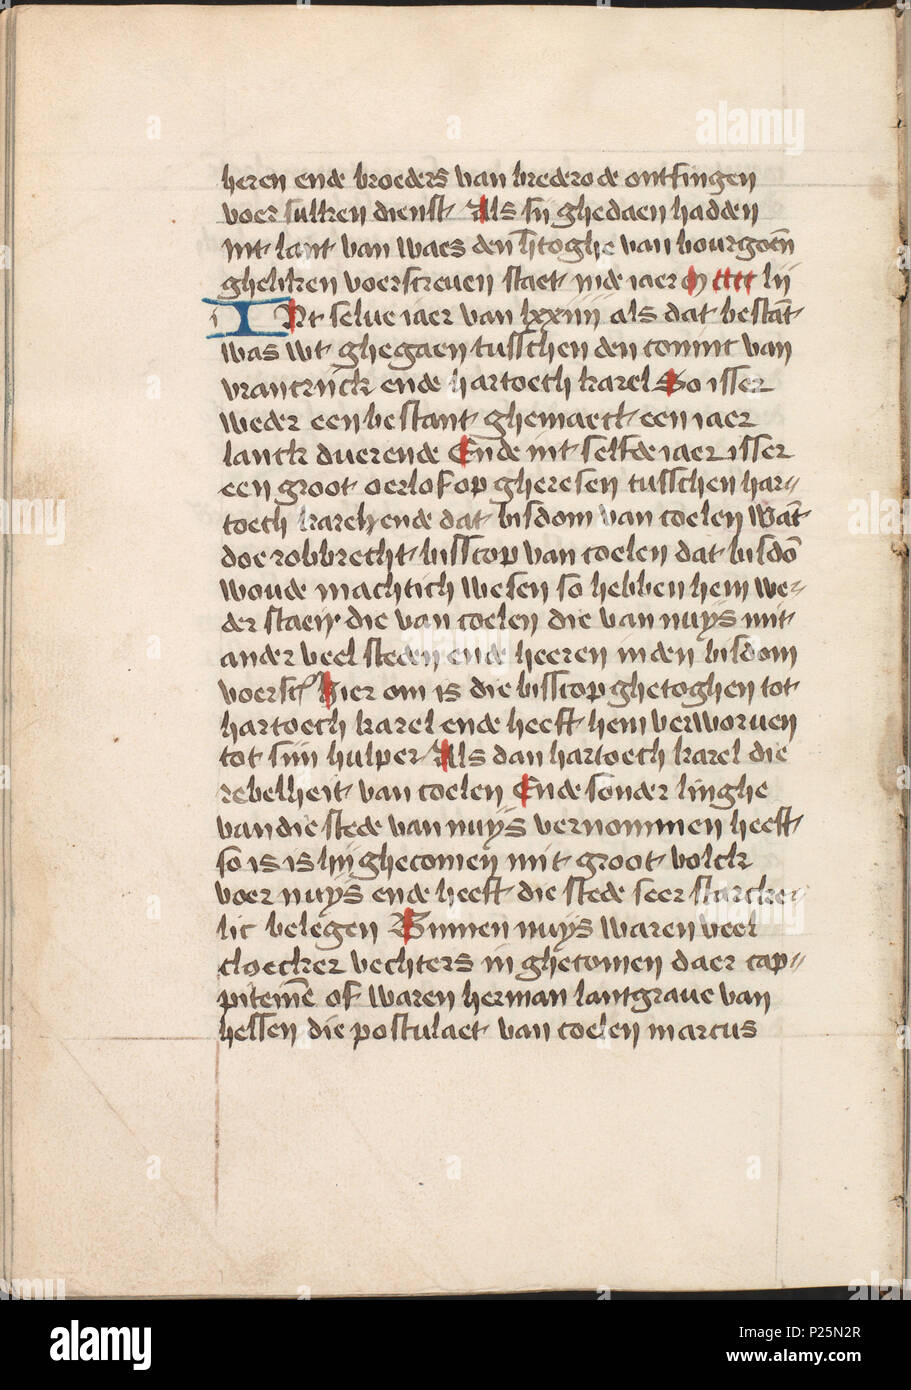 heren ende broeders van brederode ontfingen
voer sulken dienst Als sij ghedaen hadden
int lant van waes den h̄toghe van bourgoēn
ghelikert voerscreuen staet inde iaer M cccc lij
INt selue iaer van lxxiiij als dat bestāt
was wt ghegaen tusschen den coninc van
vrancrijck ende hartoech karel So isser
weder een bestant ghemaect een iaer
lanck duerende Ende int selfde iaer isser
een groot oerlof op gheresen tusschen har-
toech karel ende dat bisdom van coelen wāt
doe robbrecht bisscop van coelen dat bisdō
woude machtich wesen so hebben hem we-
der staen die van coelen die van nuys mit
ander veel steden ende heeren in den bisdom
voersc Hier om is die bisscop ghetoghen tot
hartoech karel ende heeft hem verworuen
tot sijn hulper Als dan hartoech karel die
rebelheit van coelen Ende sonderlinghe
van die stede van nuys vernommen heeft
so is is hij ghecomen mit groot volck
voer nuys ende heeft die stede seer starcke-
lic belegen Binnen nuys waren veel
cloecker vechters in ghecomen daer cap-
pitemē of waren herman lantgraue van
hessen die postulaet van coelen marcus
alamy
a
P25N2R
www.alamy.com